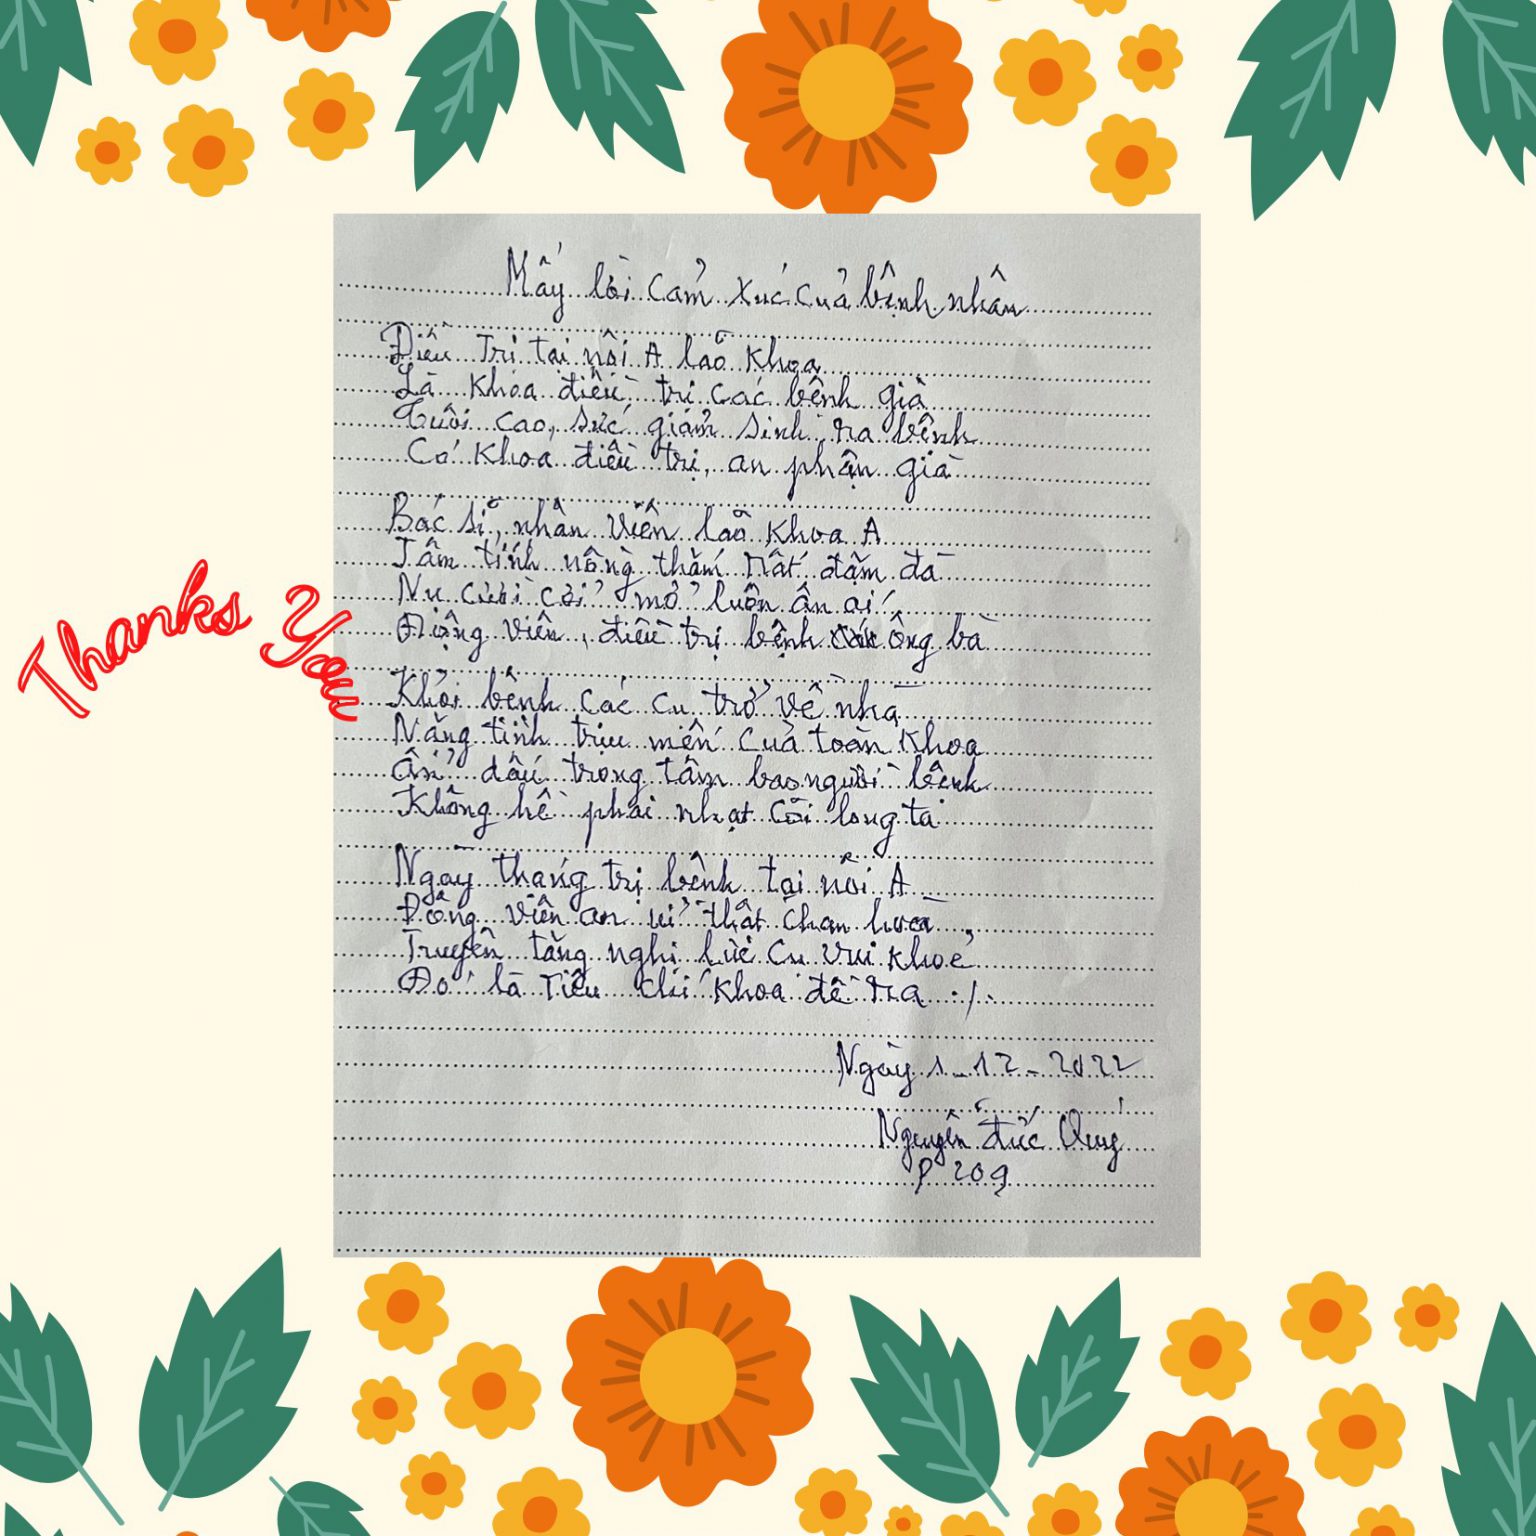 Mấy lời cảm xúc của bệnh nhân
Điều Trị tại nội A lão khoa
Là khoa điều trị các bệnh già
Tuổi cao, sức giảm sinh ra bệnh
Có khoa điều trị, an phận già
Bác sĩ, nhân viên lão khoa A
Tâm tính nồng thắm rất đậm đà
Nụ cười cởi mở luôn ân ái
Động viên, điều trị bệnh ông bà
Khỏi bệnh các cụ trở về nhà
Nặng tình trìu mến của toàn khoa
Ẩn dấu trong tâm bao người bệnh
Không hề phai nhạt cõi lòng ta
Ngày tháng trị bệnh tại nội A
Động viên an ủi thật chan hoà
Truyền tăng nghị lực cụ vui khoẻ
Đó là Tiêu chí khoa đề ra ./.
Ngày 1-12-2022
Nguyễn Đức Quý
P 209
Thanks You